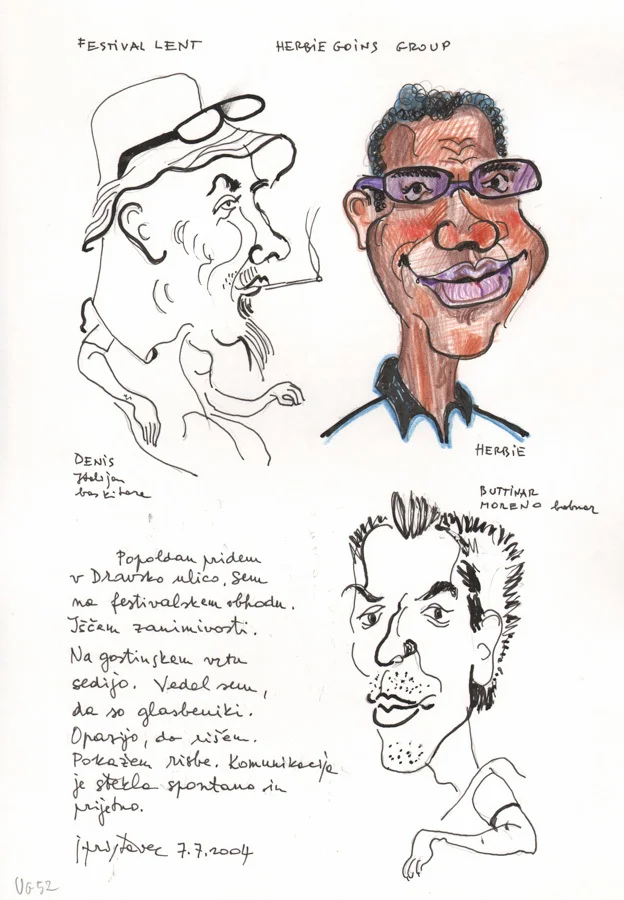 FESTIVAL LENT
HERBIE GOINS GROUP
HERBIE
DENIS
Italijan
bas kitara
BUTTINAR
MORENO bobnar
Popoldan pridem
v Dravsko ulico. Sem
na festivalskem obhodu.
Iščem zanimivosti.
Na gostinskem vrtu
sedijo. Vedel sem,
da so glasbeniki.
Opazijo, da rišem.
Pokažem risbe. Komunikacija
je stekla spontano in
prijetno.
7.7.2004
VG52